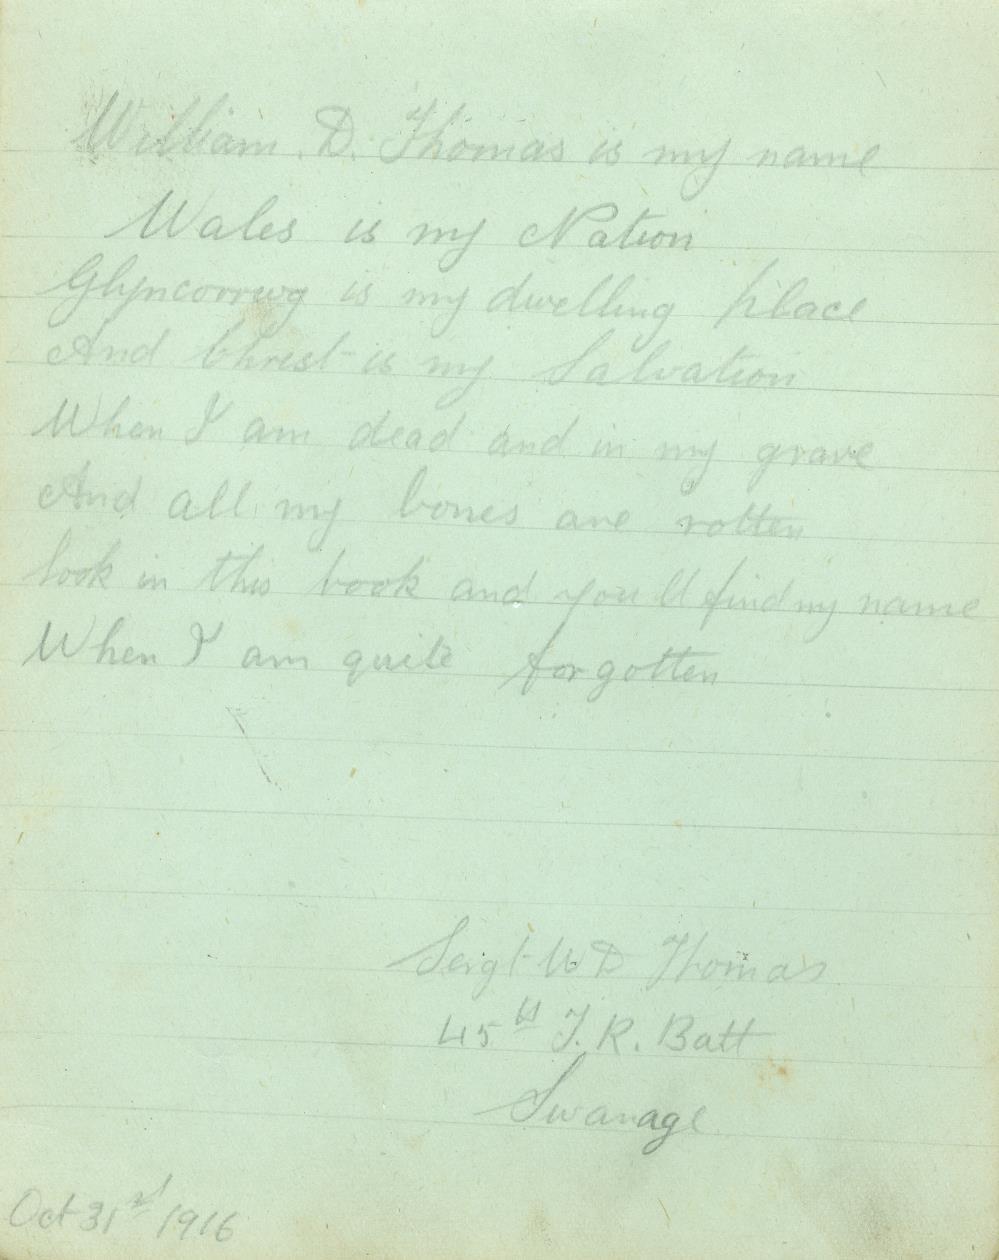 William. D. Thomas is my name
Wales is my Nation
Glyncorrwg is my dwelling place
And Christ is my Salvation
When I am dead and in my grave
And all my bones are rotten
look in this book and you'll find my name
When I am quite forgotten
Sergt W D Thomas
45th T. R. Batt
Swanage
Oct 31st 1916